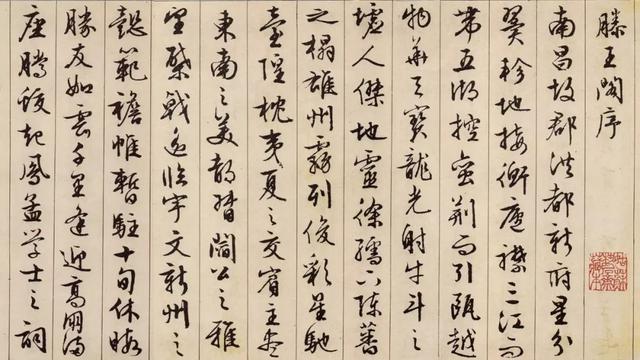 滕王閣序
南昌故都洪都新府星分
翼軫地接衡廬襟三江而
帶五湖控蠻荊而引甌越
物華天寶龍光射牛斗之
墟人傑地靈徐孺下陳蕃
之榻雄州霧列俊彩星馳
臺隍枕夷夏之交賓主盡
東南之美都督閻公之雅
望棨戟遙臨宇文新州之
懿範襜帷暫駐十旬休暇
勝友如雲千里逢迎高朋滿
座騰蛟起鳳孟学士之詞